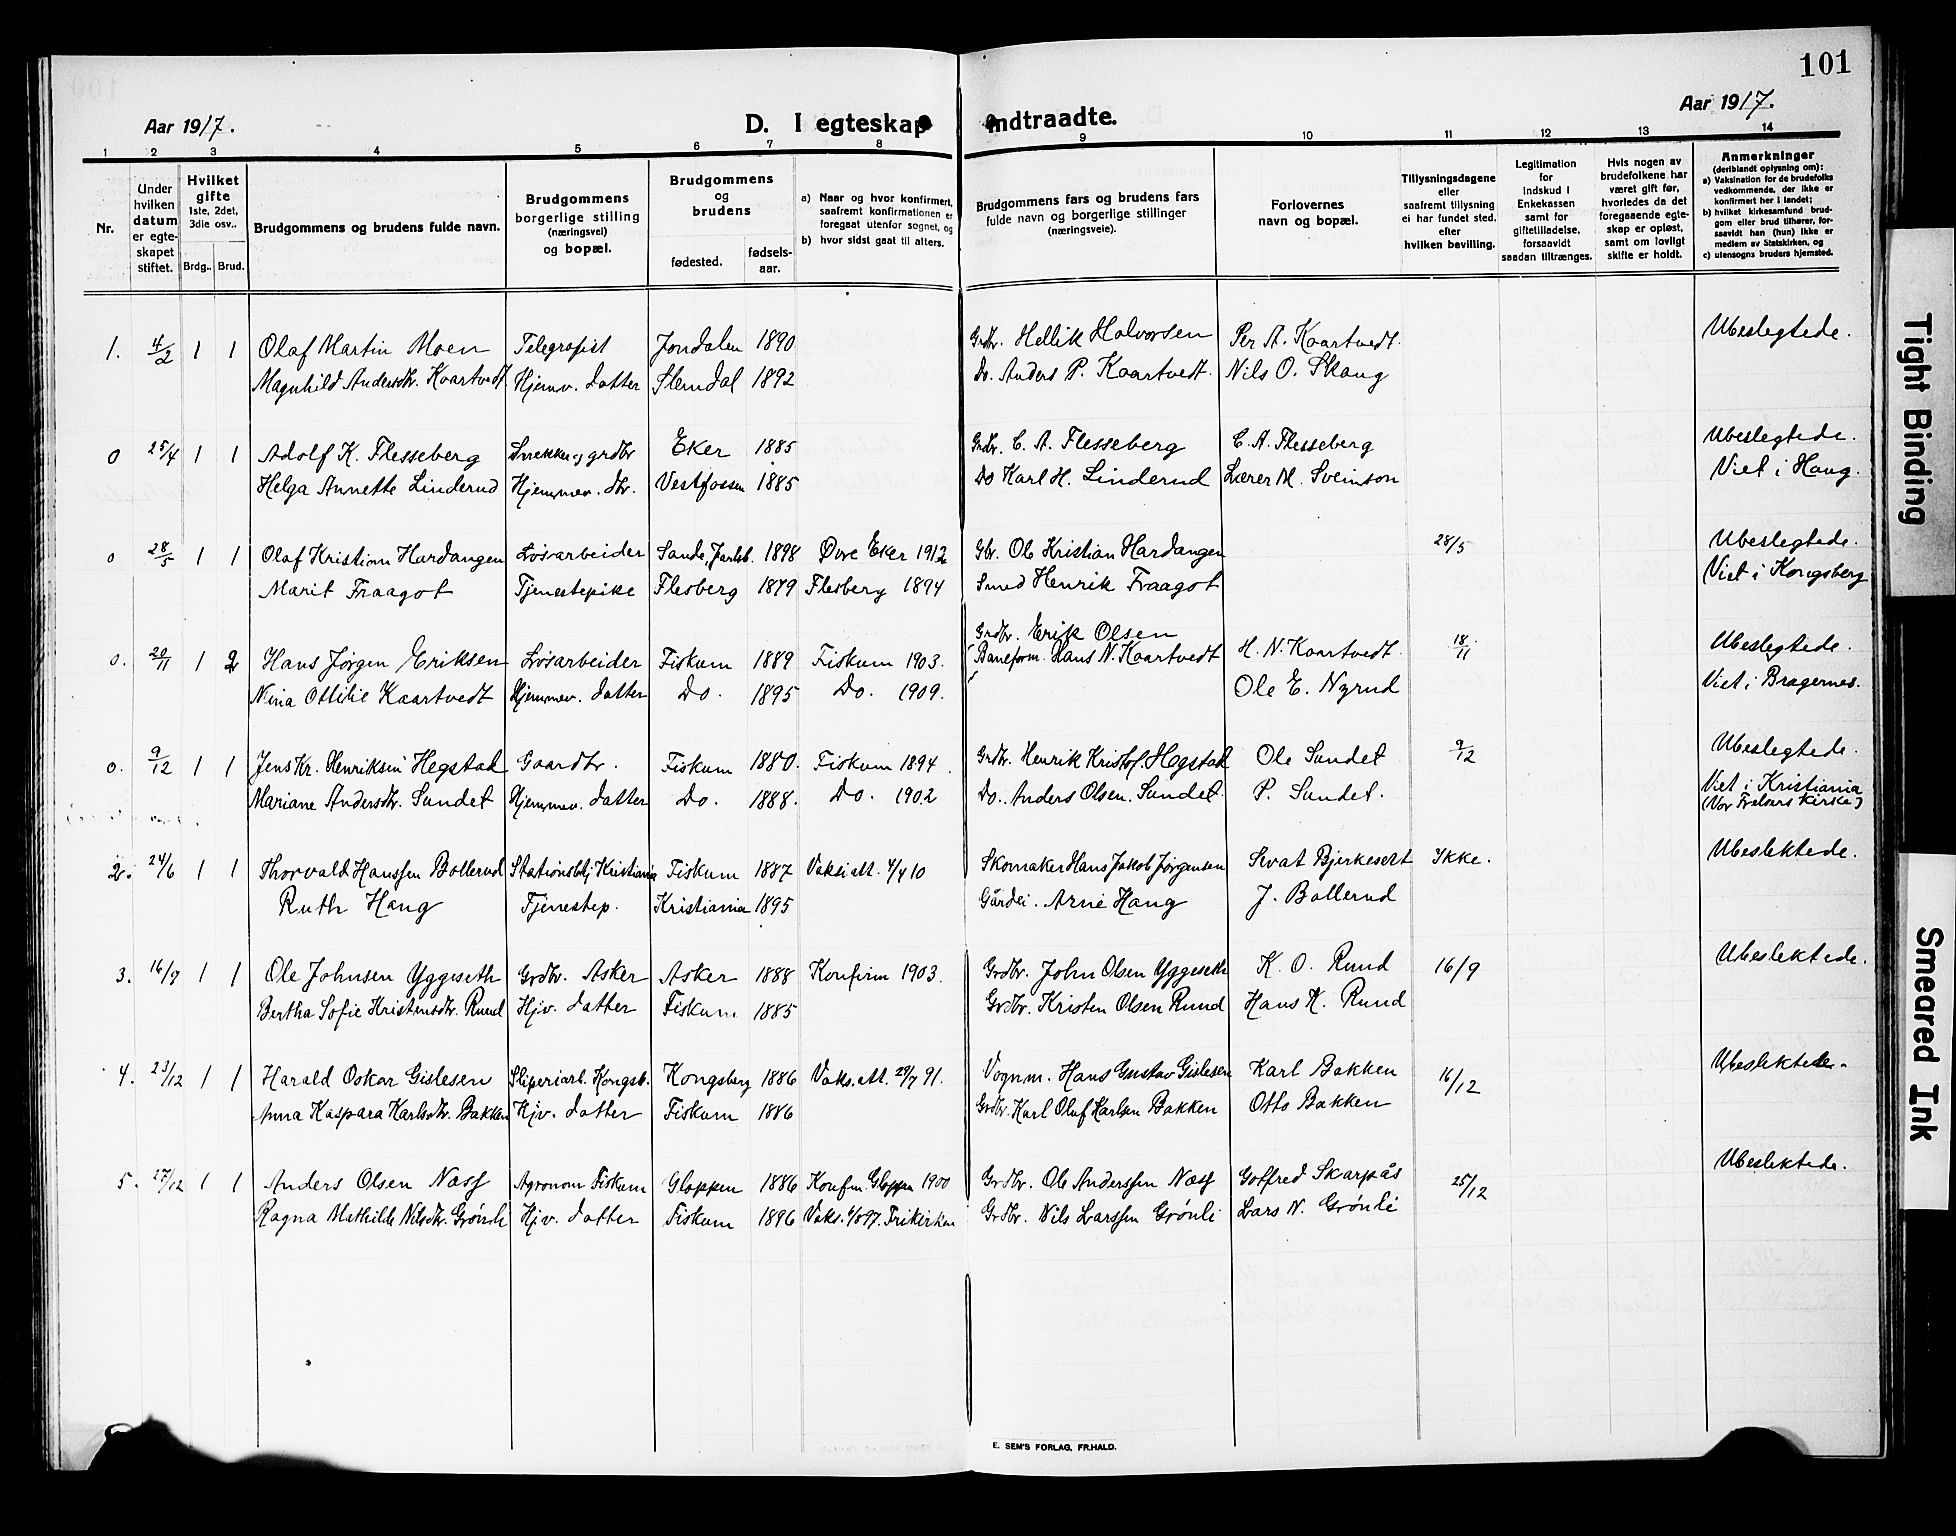 101
Aar 1917.
D. I egteskap indtraadte.
Aar 1917.
1 2 3 4 5 6 7 8 9 10 11 12 13 14
Nr.
Under hvilken datum er egteskapet stiftet.
Hvilket gifte 1ste, 2det, 3die osv..
Brdg.. Brud.
Brudgommens og brudens fulde navn.
Brudgommens borgerlige stilling (næringsvei) og bopæl.
Brudgommens og brudens
fødested. fødselsaar.
a) Naar og hvor konfirmert, saafremt konfirmationen er foregaat utenfor sognet, og
b) hvor sidst gaat til alters.
Brudgommens fars og brudens fars fulde navn og borgerlige stillinger (næringsveie).
Forlovernes navn og bopæl.
Tillysningsdagene eller saafremt tillysning ei har fundet sted. efter hvilken bevilling.
Legitimation for indskud i Enkekassen samt for giftetilladelse, forsaavidt saadan tiltrænges.
Hvis nogen av brudefolkene har været gift før, hvorledes da det foregaaende egteskap er opløst, samt om lovligt skifte er holdt.
Anmerkninger (deriblandt oplysning om):
a) Vaksination for de brudefolks vedkommende, der ikke er konfirmert her i landet;
b) hvilket kirkesamfund brudgom eller brud tilhører, forsaavidt han (hun) ikke er medlem av Statskirken, og
c) utensogns bruders hjemsted.
1. 4/2 1 1 Olaf Martin Moen Telegrafist Jondalen 1890 Grdbr. Hellik Halvorsen Per A. Kaartvedt. Ubeslegtede.
Magnhild Andersdtr. Kaartvedt Hjemv. datter Slemdal 1892 Do. Anders P. Kaartvedt. Nils O. Skaug
0 25/4 1 1 Adolf K. Flesseberg Snekker og grdbr Eker 1885 Grdbr. C. A. Flesseberg C. A. Flesseberg Ubeslegtede.
Helga Annette Linderud Hjemmev. dtr. Vestfossen 1885 Do Karl H. Linderud Lærer M. Sveinson Viet i Haug.
0 28/5 1 1 Olaf Kristian Hardangen Løsarbeider Sande, Jarlsb. 1898 Øvre Eker 1912 Gbr. Ole Kristian Hardangen 28/5 Ubeslegtede.
Marit Fraagot Tjenestepike Flesberg 1879 Flesberg 1894 Smed Henrik Fraagot Viet i Kongsberg
0. 20/11 1 2 Hans Jørgen Eriksen Løsarbeider Fiskum 1889 Fiskum 1903. Grdbr. Erik Olsen H. N. Kaartvedt. 18/11 Ubeslegtede.
Nina Ottilie Kaartvedt Hjemmev. datter Do. 1895 Do. 1909. Baneform. Hans N. Kaartvedt Ole E. Nyrud Viet i Bragernes.
0. 9/12 1 1 Jens Kr. Henriksen Hegstad Gaardbr. Fiskum 1880. Fiskum 1894. Grdbr. Henrik Kristof. Hegstad Ole Sundet 9/12 Ubeslegtede.
Mariane Andersdtr. Sundet Hjemmev. datter Do. 1888. Do. 1902 Do. Anders Olsen. Sundet P. Sundet. Viet i Kristiania
(Vor Frelsers Kirke)
2. 24/6 1 1 Thorvald Hanssen Bollerud Stationsbtj. Kristiania Fiskum 1887 Vaksiatt. 4/4 10 Skomaker Hans Jakob Jørgensen Sevat Bjerkesett Ikke. Ubeslektede.
Ruth Haug Tjenestep. Kristiania 1895 Gårdei. Arne Haug J. Bollerud
3. 16/9 1 1 Ole Johnsen Yggeseth Grdbr. Asker Asker 1888 Konfirm 1903. Grdbr. John Olsen Yggeseth K. O. Ruud 16/9 Ubeslektede.
Bertha Sofie Kristensdtr. Ruud Hjv. datter Fiskum 1885 Grdbr. Kristen Olsen Ruud Hans K. Ruud
4. 23/12 1 1 Harald Oskar Gislesen Sliperiarb. Kongsb. Kongsberg 1886 Vaks.att. 29/7 91. Vognm. Hans Gustav Gislesen Karl Bakken 16/12 Ubeslektede.
Anna Kaspara Karlsdtr. Bakken Hjv. datter Fiskum 1886 Grdbr. Karl Oluf Karlsen Bakken Otto Bakken
5. 27/12 1 1 Anders Olsen Næss Agronom Fiskum Gloppen 1886 Konfirm. Gloppen 1900 Grdbr. Ole Anderssen Næss Gotfred Skarpås 25/12 Ubeslektede.
Ragna Mathilde Nilsdtr. Grønli Hjv. datter Fiskum 1896 Vaks. 4/8 97. Frikirken Grdbr. Nils Larssen Grønli Lars N. Grønli
E. SEM'S FORLAG, FR.HALD.
Tight Binding
Smeared Ink